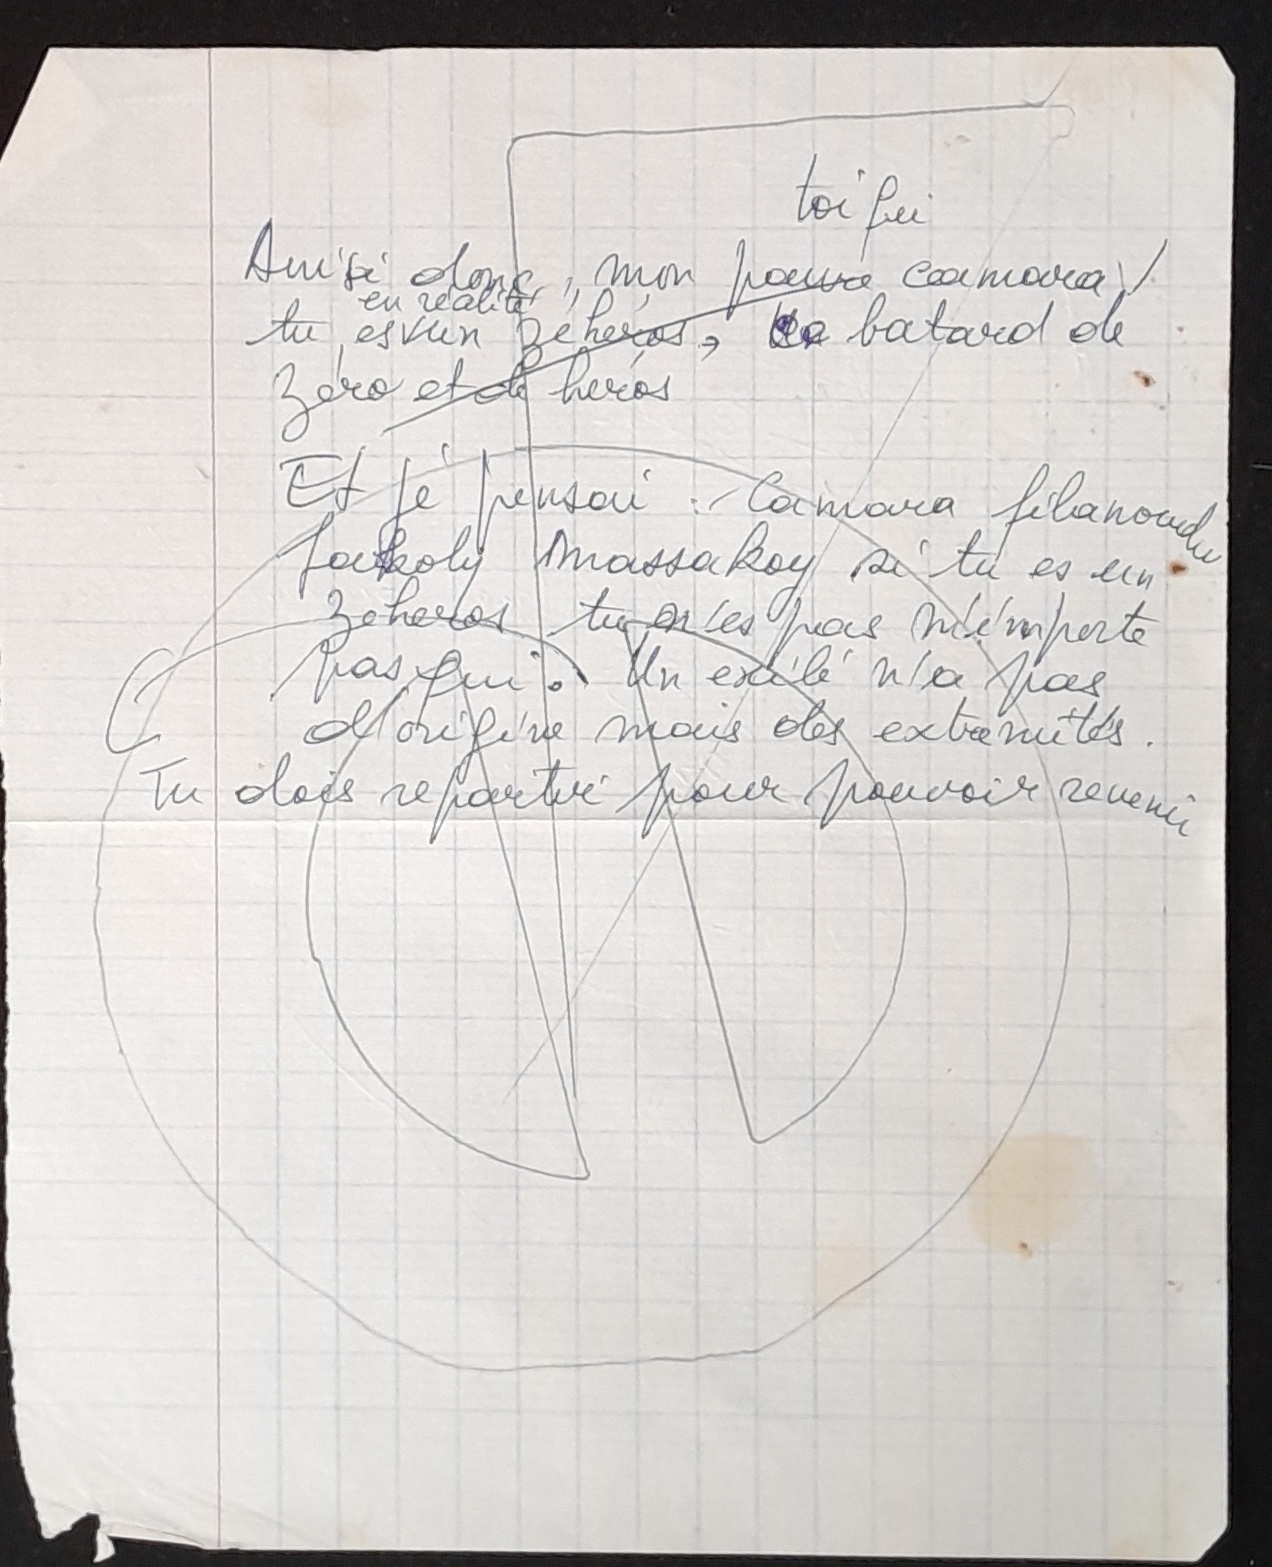 toi qui
Ainsi donc, mon pauvre camara,
en réalité
tu es un zéhéros, batard de
zéro et de héros
Et je pensai : Camara filamoudu
fakoly Massakoy si tu es un
zeheros tu n'es pas n'importe
pas qui. Un exilé n'a pas
d'origine mais des extremités.
Tu dois repartir pour pouvoir revenir